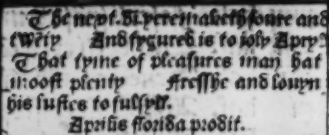 The next .vi. yere maketh foure and
twẽty And fygured is to ioly Apryl
That tyme of pleasures man hat
moost plenty Fresshe and louyn
his lustes to fulfyll.
Aprilis florida prodit.